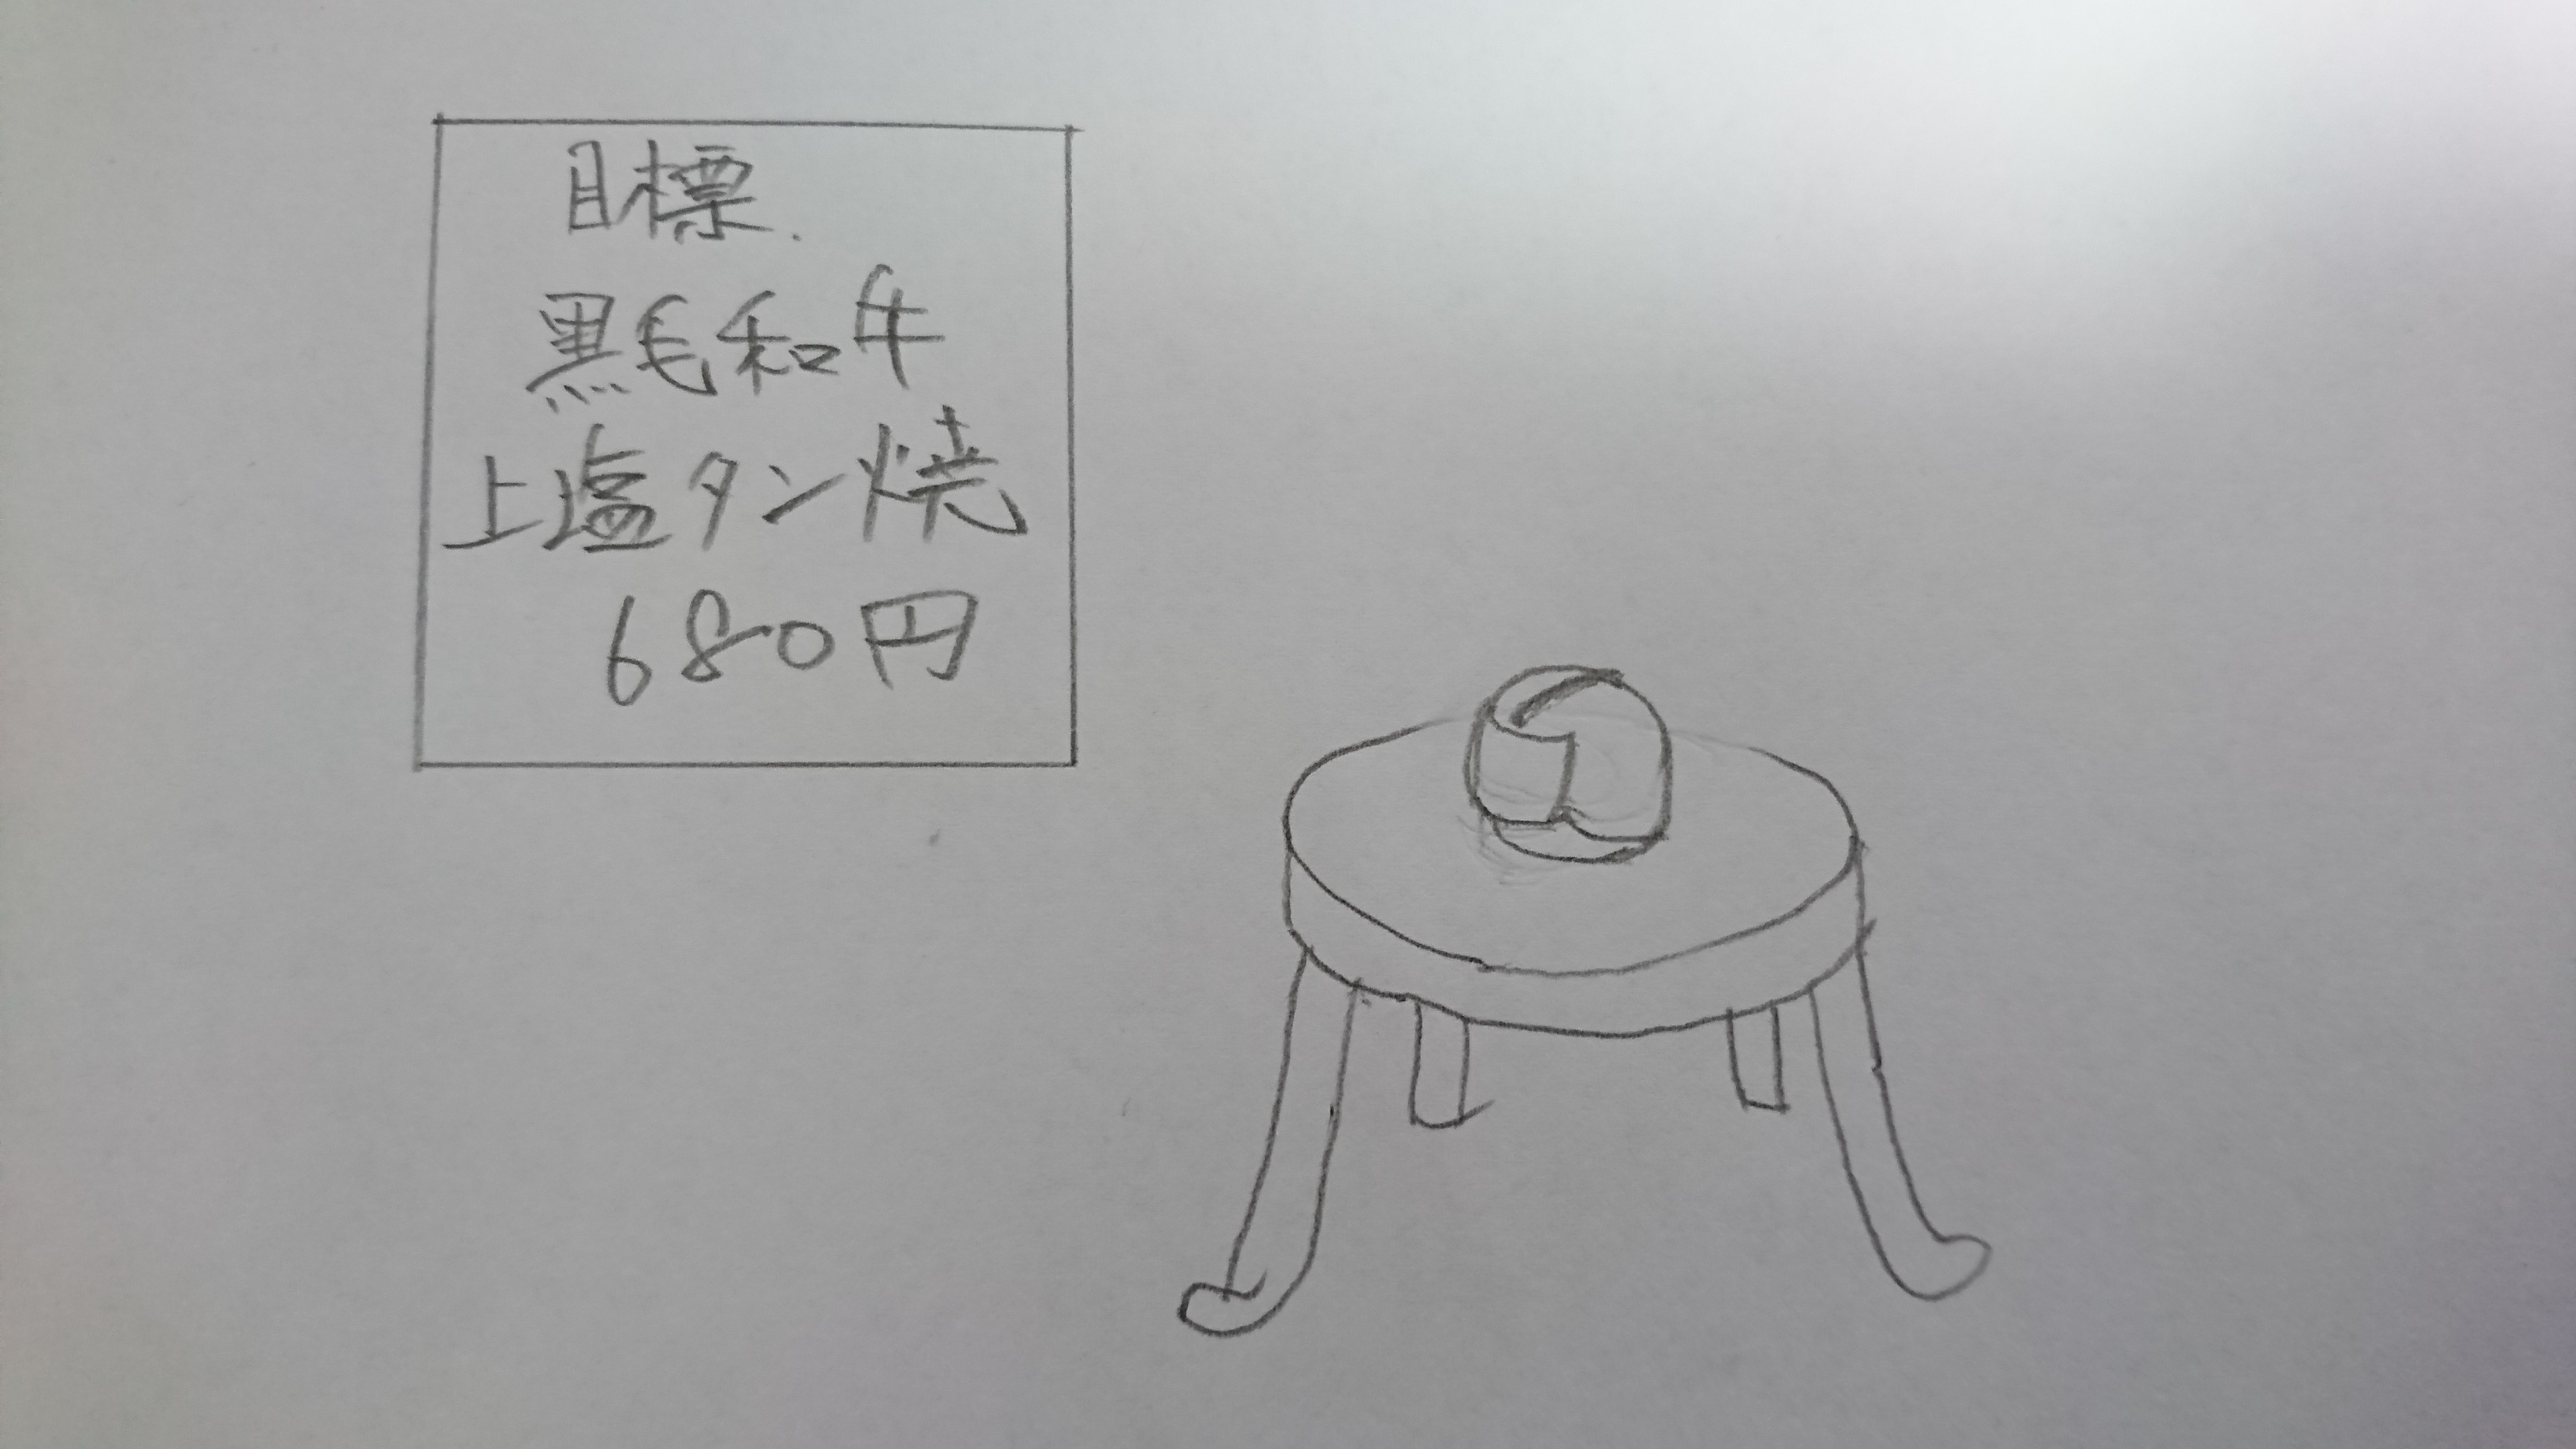 目標.
黒毛和牛
上塩タン焼
680円